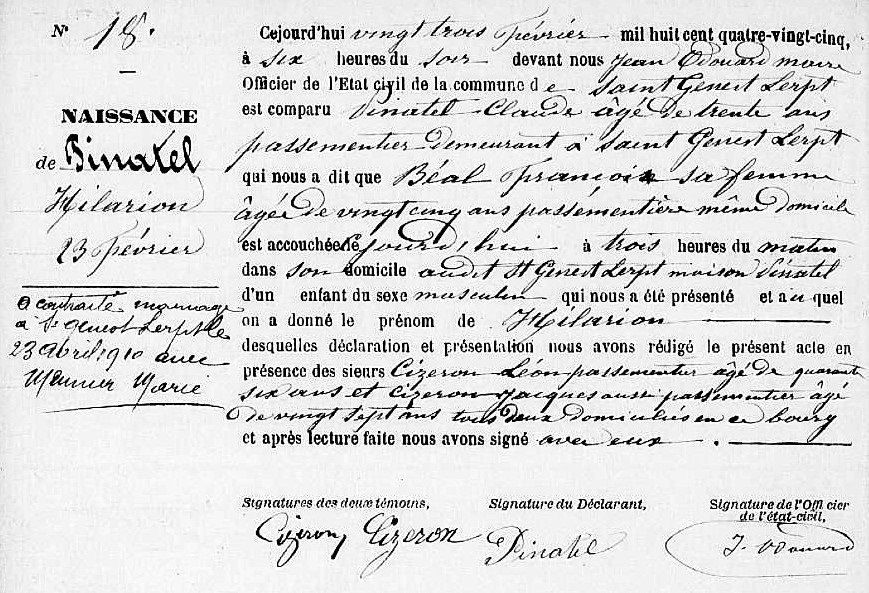 N° 18.
NAISSANCE
de Pinatel
Hilarion
23 Février
a contracté mariage
à St Genest Lerpt le
23 avril 1910 avec
Meunier Marie
Cejourd'hui vingt trois Février mil huit cent quatre-vingt-cinq,
à six heures du soir devant nous Jean Odouard maire
Officier de l'Etat civil de la commune de Saint Genest Lerpt
est comparu Pinatel Claude âgé de trente ans
passementier demeurant à Saint Genest Lerpt
qui nous a dit que Béal François sa femme
âgée de vingt cinq ans passementière même domicile
est accouchée ce jourd'hui à trois heures du matin
dans son domicile audit St Genest Lerpt maison Pinatel
d'un enfant du sexe masculin qui nous a été présenté et auquel
on a donné le prénom de Hilarion
desquelles déclaration et présentation nous avons rédigé le présent acte en
présence des sieurs Cizeron Léon passementier âgé de quarante
six ans et Cizeron Jacques aussi passementier âgé
de vingt sept ans tous deux domiciliés en ce bourg
et après lecture faite nous avons signé avec eux.
Signatures des deux témoins, Signature du Déclarant, Signature de l'Officier
de l'état-civil,
Cizeron Cizeron Pinatel J. Odouard